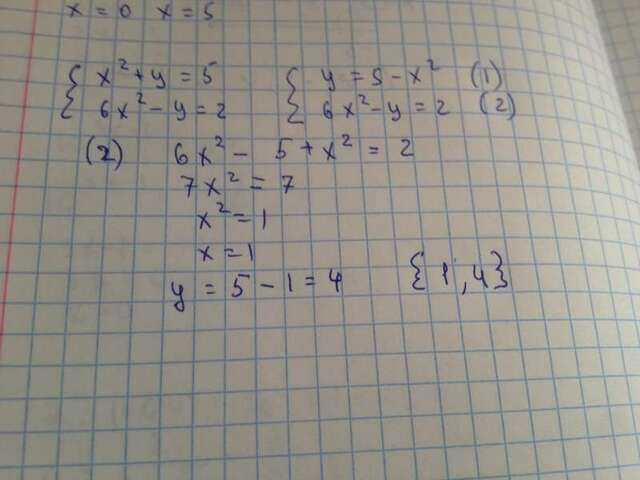 x = 0 x = 5
{ x² + y = 5 { y = 5 - x² (1)
{ 6x² - y = 2 { 6x² - y = 2 (2)
(2) 6x² - 5 + x² = 2
7x² = 7
x² = 1
x = 1
y = 5 - 1 = 4 {1, 4}